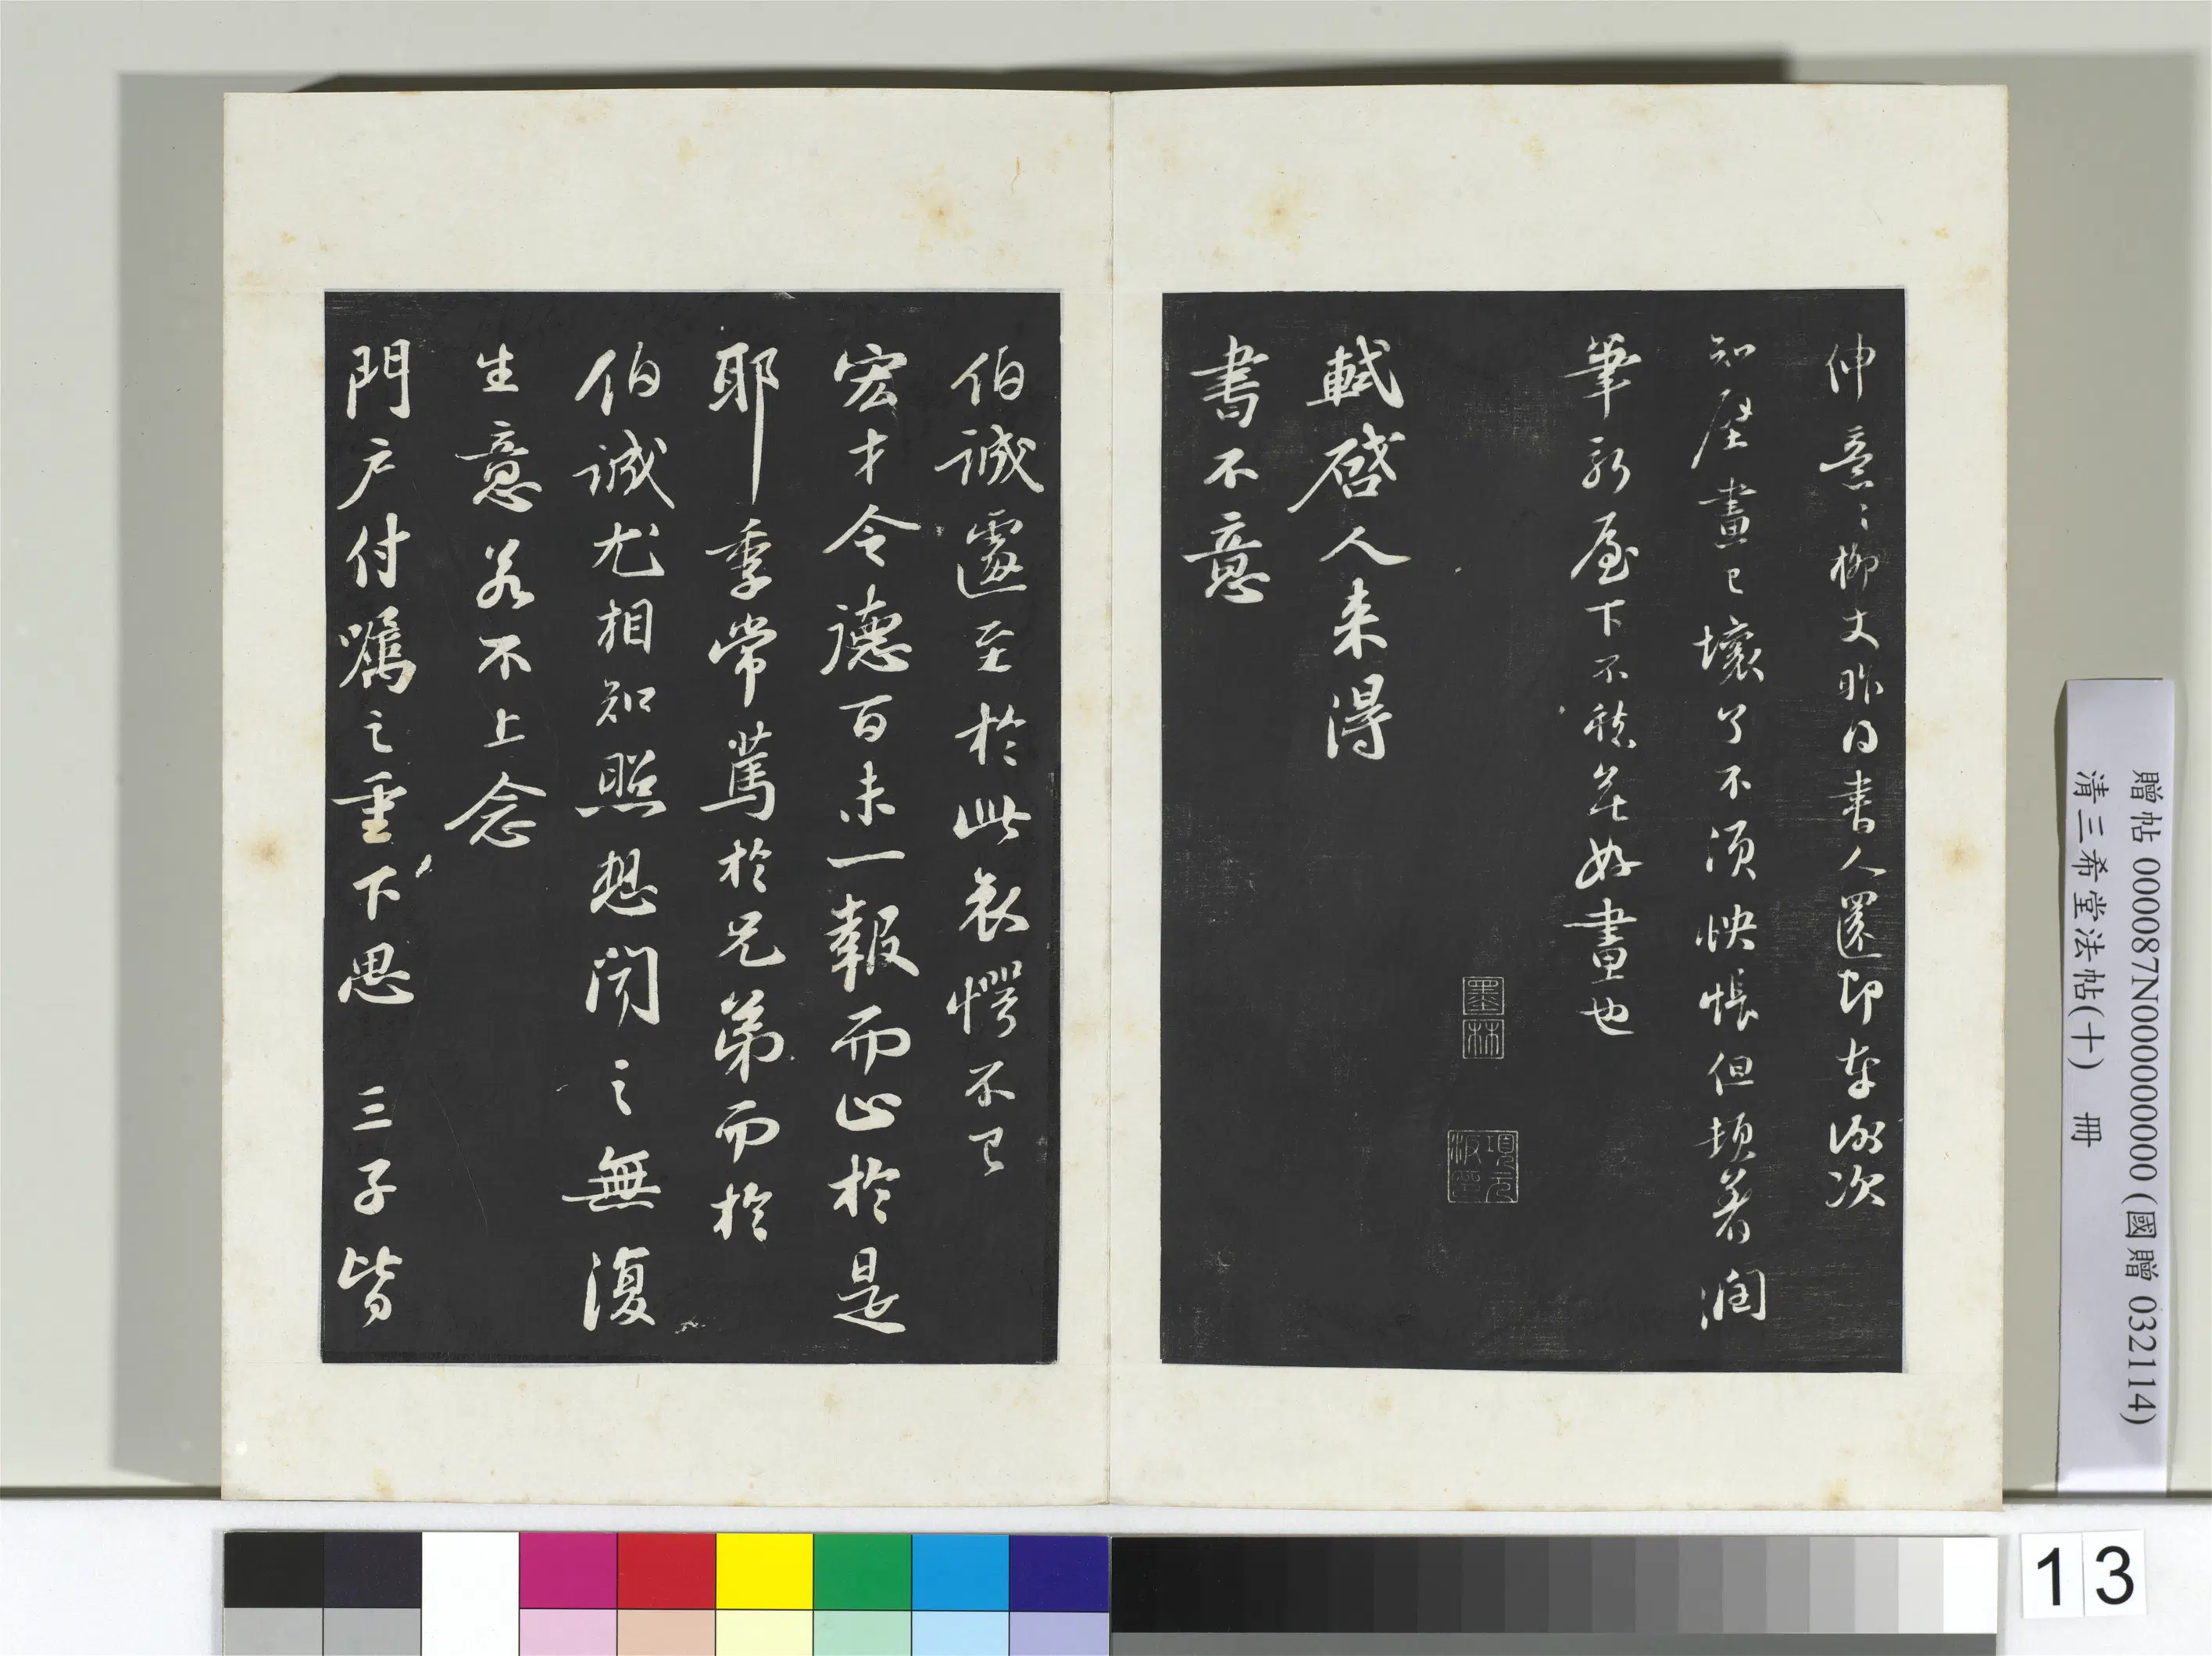 伸意〻柳丈昨得書人還即奉謝次
知壁畫已壞了不須怏悵但頓著潤
筆新屋下不愁無好畫也
墨林
項元汴印
軾啓人来得
書不意
伯誠遽至於此哀愕不已
宏才令德百未一報而止於是
耶季常篤於兄弟而於
伯誠尤相知照想聞之無復
生意若不上念
門户付囑之重下思 三子皆
贈帖 000087N000000000 (國贈 032114)
清三希堂法帖(十) 冊
13